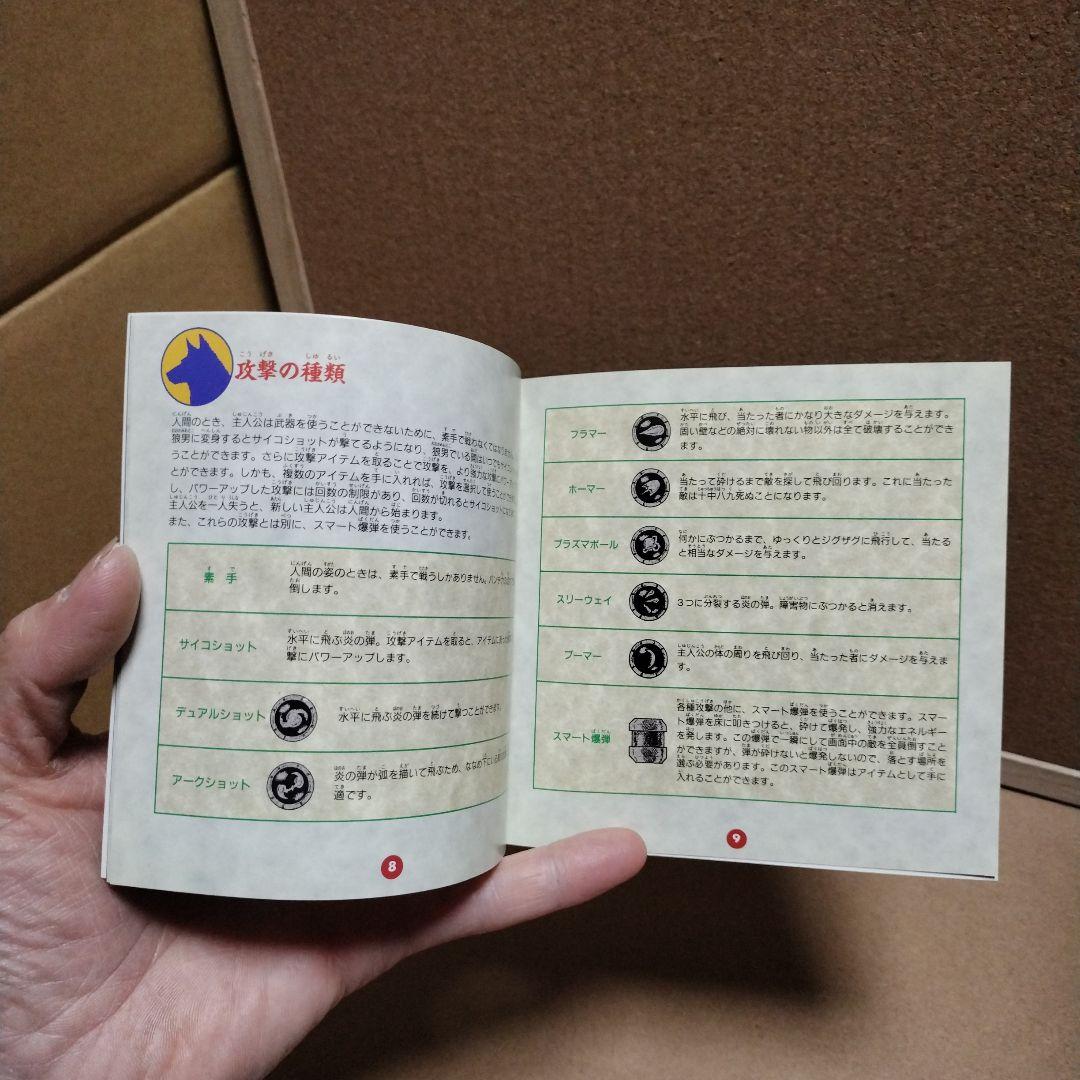 攻撃の種類
人間のとき、主人公は武器を使うことができないために、素手で戦わなくてはなりません
狼男に変身するとサイコショットが撃てるようになり、狼男でいる間はいつでもサイコ
うことができます。さらに攻撃アイテムを取ることで攻撃を、より強力な攻撃にパワー
とができます。しかも、複数のアイテムを手に入れれば、攻撃を選択して使うことができ
し、パワーアップした攻撃には回数の制限があり、回数が切れるとサイコショットに
主人公を一人失うと、新しい主人公は人間から始まります。
また、これらの攻撃とは別に、スマート爆弾を使うことができます。
素手
人間の姿のときは、素手で戦うしかありません。パンチ
倒します。
サイコショット
水平に飛ぶ炎の弾。攻撃アイテムを取ると、アイテムに
撃にパワーアップします。
デュアルショット
水平に飛ぶ炎の弾を続けて撃つことができます。
アークショット
炎の弾が弧を描いて飛ぶため、ななめ下にいる
適です。
8
フラマー
水平に飛び、当たった者にかなり大きなダメージを与えます。
固い壁などの絶対に壊れない物以外は全て破壊することができ
ます。
ホーマー
当たって砕けるまで敵を探して飛び回ります。これに当たった
敵は十中八九死ぬことになります。
プラズマボール
何かにぶつかるまで、ゆっくりとジグザグに飛行して、当たる
と相当なダメージを与えます。
スリーウェイ
3つに分裂する炎の弾。障害物にぶつかると消えます。
ブーマー
主人公の体の周りを飛び回り、当たった者にダメージを与えま
す。
スマート爆弾
各種攻撃の他に、スマート爆弾を使うことができます。スマー
ト爆弾を床に叩きつけると、砕けて爆発し、強力なエネルギー
を発します。この爆弾で一瞬にして画面中の敵を全員倒すこと
ができますが、弾が砕けないと爆発しないので、落とす場所を
選ぶ必要があります。このスマート爆弾はアイテムとして手に
入れることができます。
9